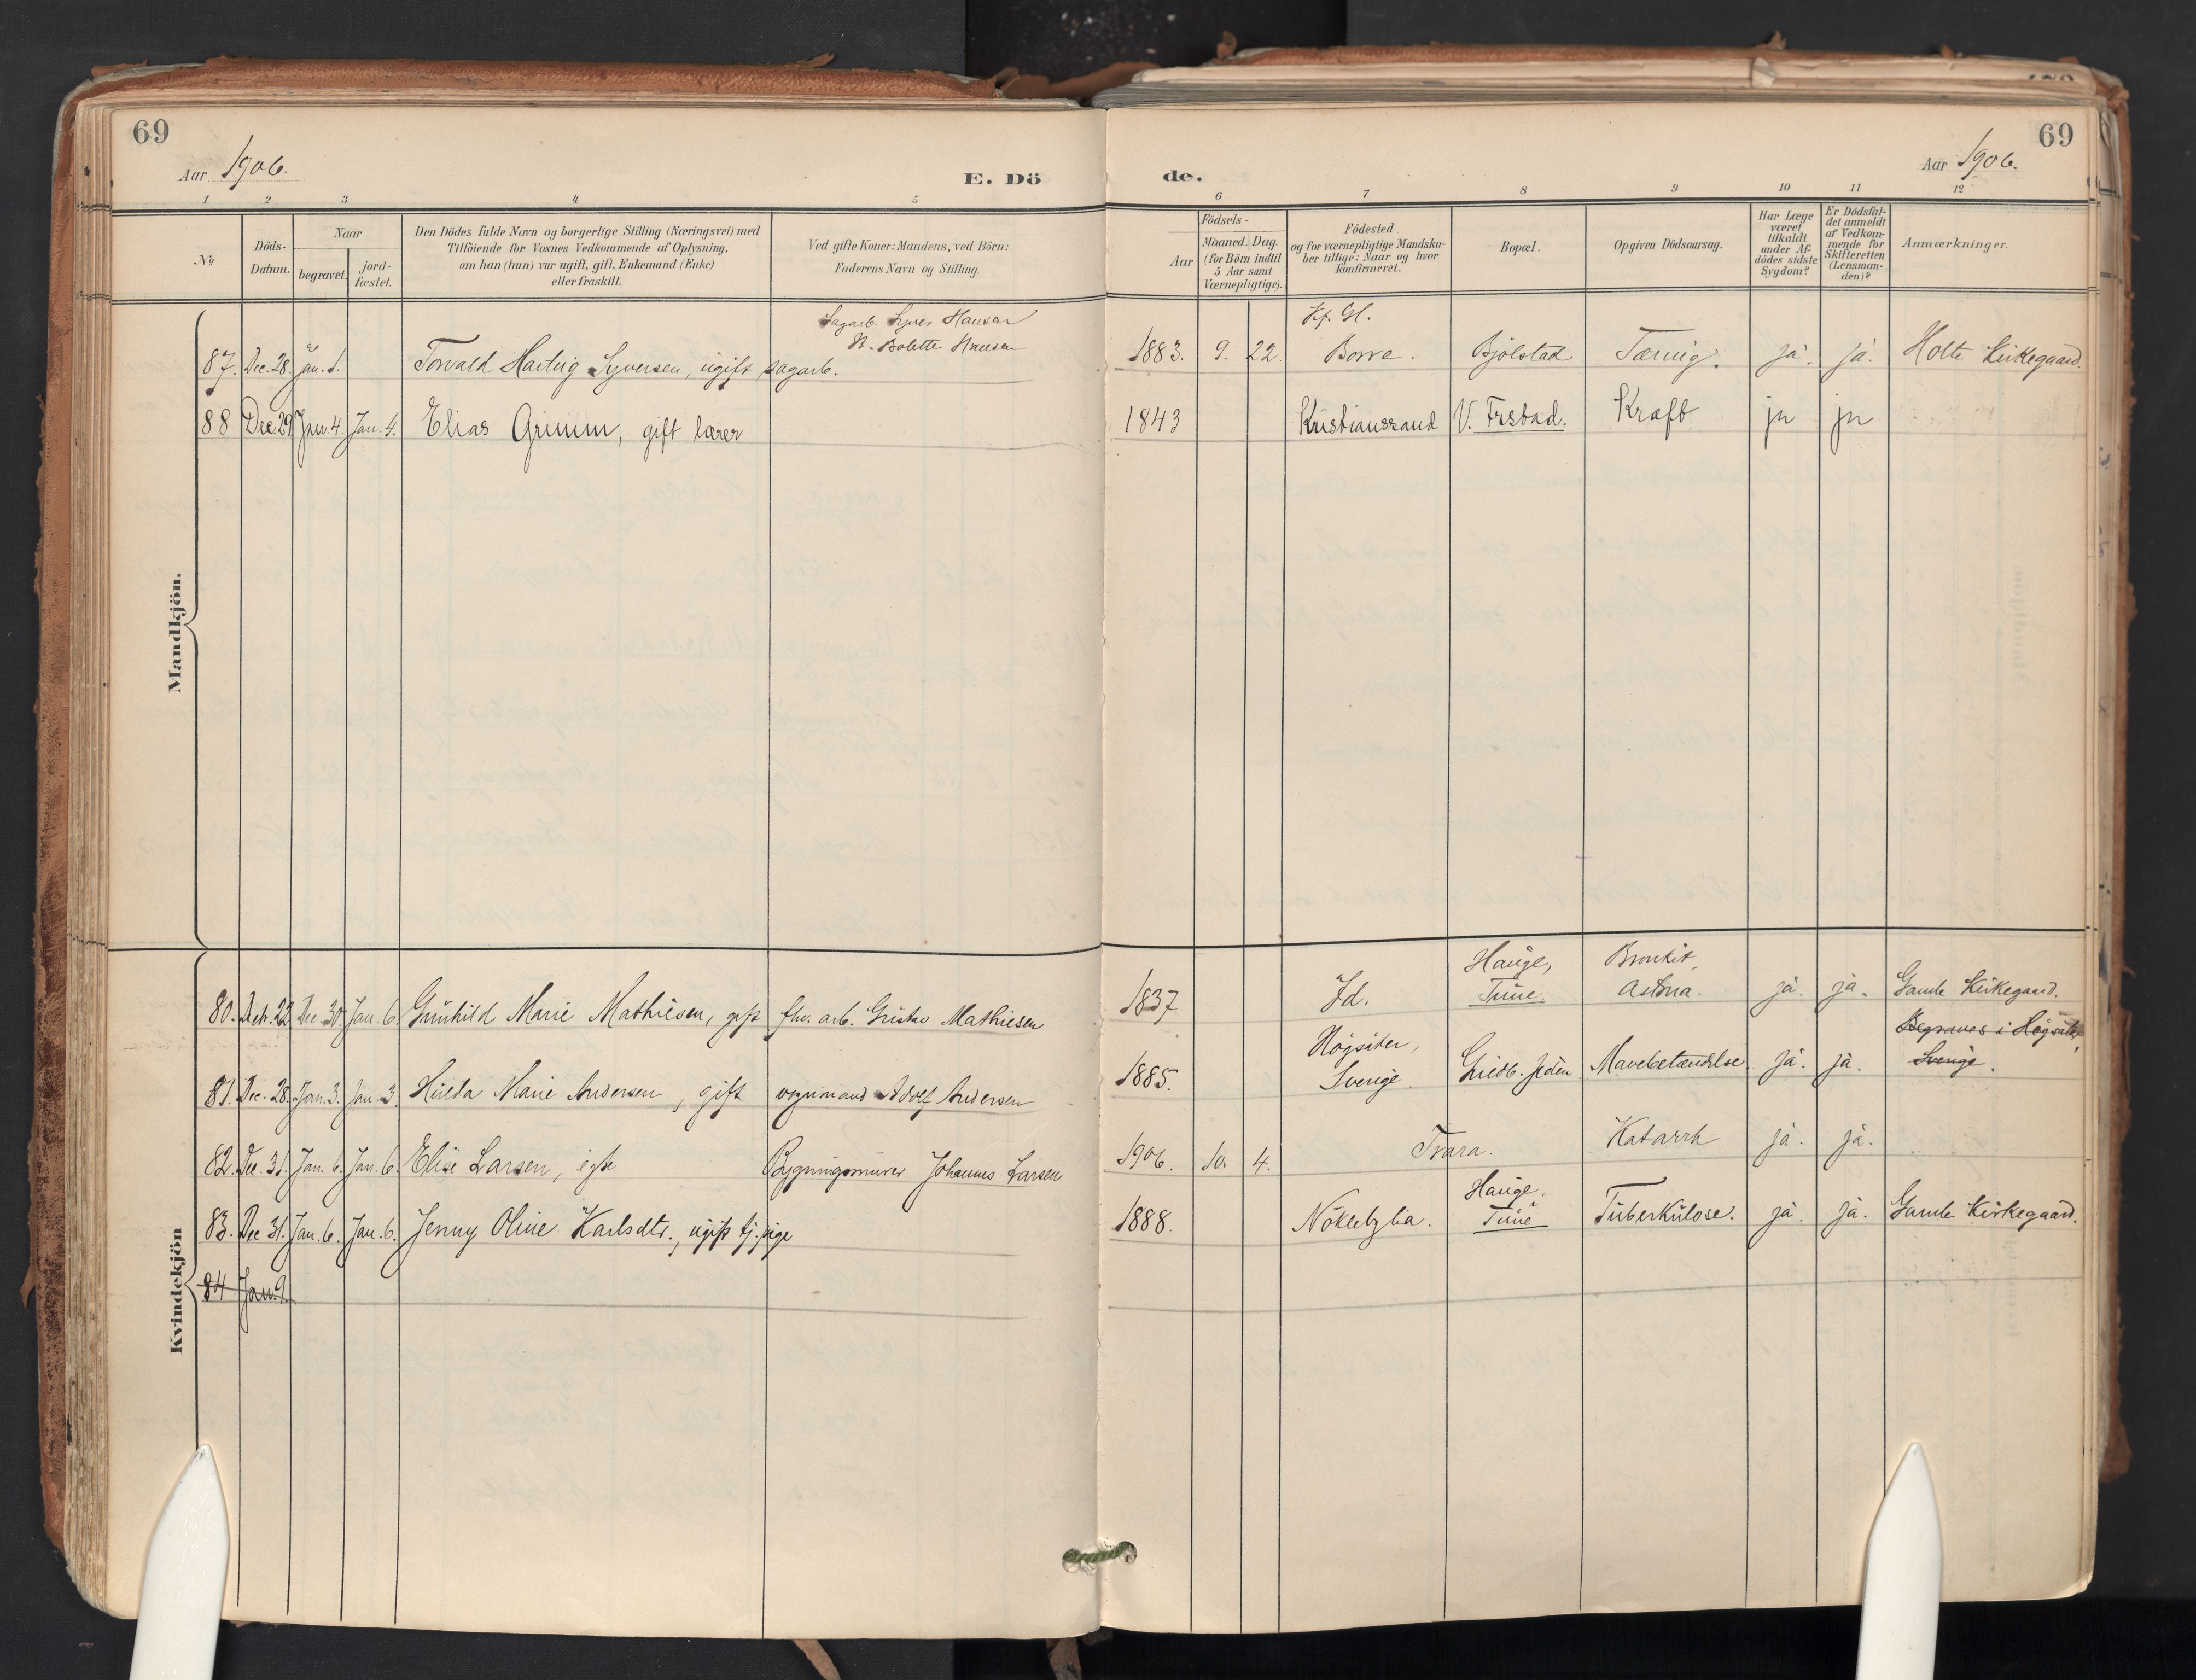 69
Aar 1906.
E. Dö
1 2 3 4 5
No
Döds-
Datum.
Naar
begravet.
jord-
fæstet.
Den Dödes fulde Navn og borgerlige Stilling (Næringsvei) med
Tilföiende for Voxnes Vedkommende af Oplysning,
om han (hun) var ugift, gift, Enkemand (Enke)
eller fraskilt.
Ved gifte Koner: Mandens, ved Börn:
Faderens Navn og Stilling.
Mandkjön.
Sagarb. Syver Hansen
H. Bolette Hansen
87. Dec. 28. Jan. 1. Torvald Hartvig Syversen, ugift sagarb.
88 Dec. 29 Jan. 4. Jan. 4. Elias Grimm, gift lærer
Kvindekjön
80. Decb. 22 Dec. 30. Jan. 6. Gunhild Marie Mathiesen, gift fhv. arb. Gustav Mathiesen
81. Dec. 28. Jan. 3. Jan. 3. Hulda Marie Andersen, gift vognmand Adolf Andersen
82. Dec. 31. Jan. 6. Jan. 6. Elise Larsen, Bygningsmurer Johannes Larsen
83. Dec 31. Jan. 6. Jan. 6. Jenny Oline Karlsdtr., ugift tj.pige
84 Jan. 9.
69
Aar 1906.
de.
6 7 8 9 10 11 12
Aar
Födsels-
Maaned. Dag.
(for Börn indtil
5 Aar samt
Værnepligtige).
Födested
og for værnepligtige Mandska-
ber tillige: Naar og hvor
konfirmeret.
Bopæl.
Opgiven Dödsaarsag.
Har Læge
været
tilkaldt
under Af-
dödes sidste
Sygdom?
Er Dödsfal-
det anmeldt
af Vedkom-
mende for
Skifteretten
(Lensman-
den)?
Anmærkninger.
1883. 9. 22. Borre. Bjölstad Tæring. ja. ja. Holte Kirkegaard.
1843 Kristianssand V. Frstad. Kræft ja ja
Hauge, Bronkit,
1837 Id. Tune. Astma. ja. ja. Gamle Kirkegaard.
Högsäter, Begraves i Högsäter,
1885. Sverige. Mavebetændelse. ja. ja. Sverige.
1906. 10. 4. Trara. Katarrh ja. ja.
Hauge.
1888. Nöklebylia. Tune Tuberkulose. ja. ja. Gamle Kirkegaard.